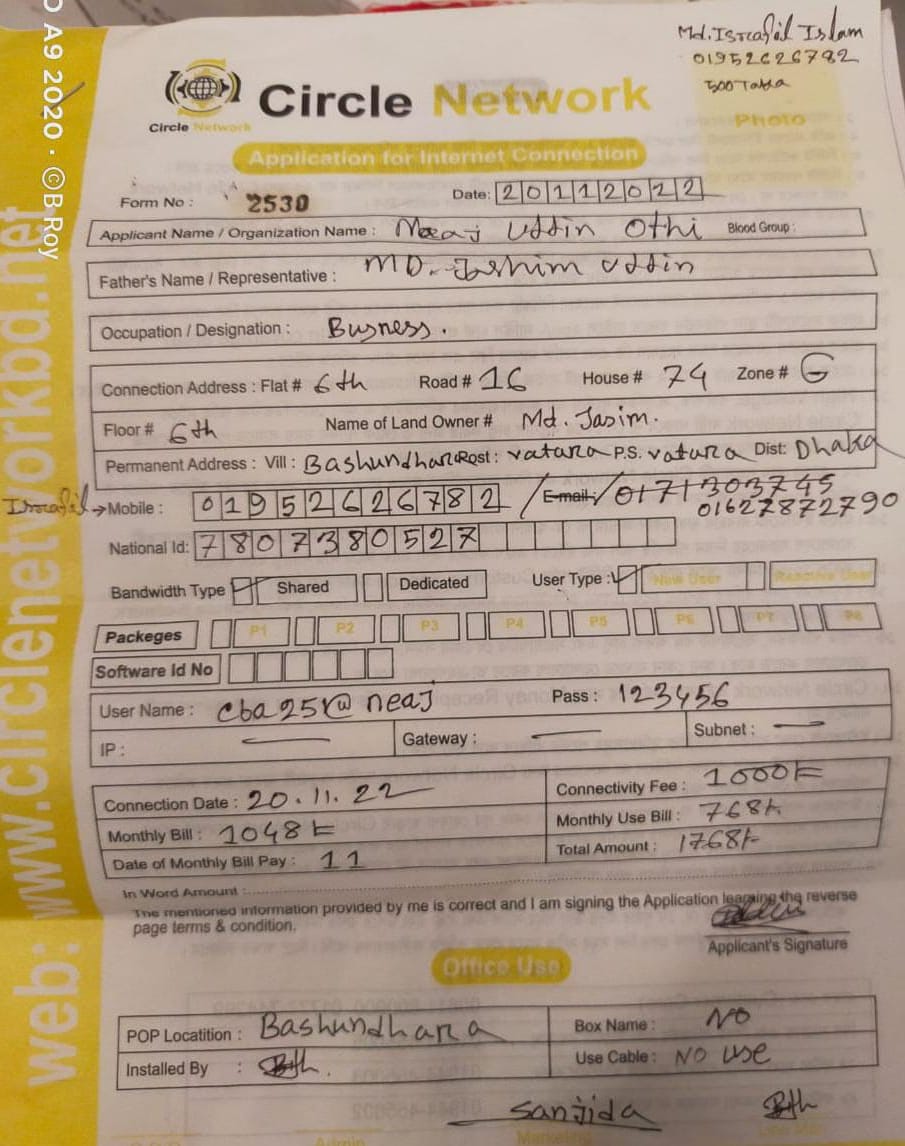 Md. Israfil Islam
01952626782
500 Taka
Photo
Circle Network
Circle Network
Application for Internet Connection
Form No : 2530
Date: 20112022
Applicant Name / Organization Name : Neaj Uddin Othi Blood Group :
Father's Name / Representative : MD. Jashim Uddin
Occupation / Designation : Busness.
Connection Address : Flat # 6th Road # 16 House # 74 Zone # G
Floor # 6th Name of Land Owner # Md. Jasim.
Permanent Address : Vill : Bashundhara Post : vatara P.S. vatara Dist: Dhaka
Israfil → Mobile : 01952626782 / E-mail: / 0171303745
01627872790
National Id: 7807380527
Bandwidth Type Shared Dedicated User Type : New User Reactive User
Packeges P1 P2 P3 P4 P5 P6 P7 P8
Software Id No
User Name : cba25@neaj Pass : 123456
IP : — Gateway : — Subnet : —
Connection Date : 20.11.22 Connectivity Fee : 1000
Monthly Bill : 1048 Monthly Use Bill : 768
Date of Monthly Bill Pay : 11 Total Amount : 1768
In Word Amount :
The mentioned information provided by me is correct and I am signing the Application learning the reverse
page terms & condition.
Applicant's Signature
Office Use
POP Locatition : Bashundhara Box Name : NO
Installed By : Use Cable : NO use
Sanjida
Admin Marketing
web: www.circlenetworkbd.net
O A9 2020 · ©B Roy